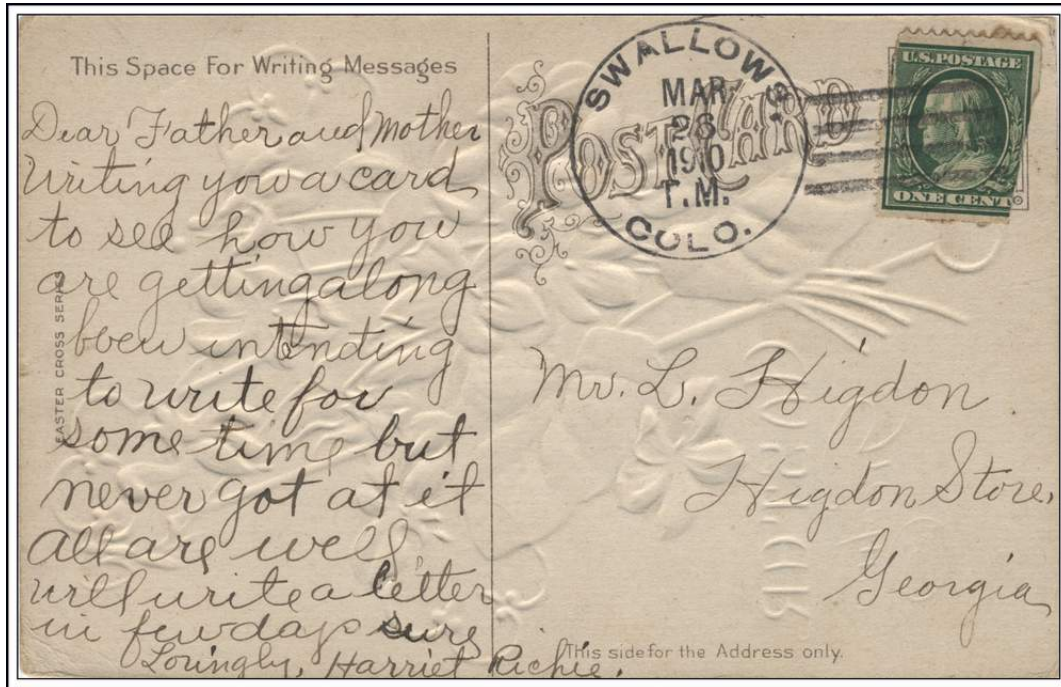 This Space For Writing Messages
Dear Father and Mother
Writing you a card
to see how you
are getting along
been intending
to write for
some time but
never got at it
all are well,
will write a letter
in few days sure
Lovingly, Harriet Richie.
EASTER CROSS SERIES
POST CARD
SWALLOWS
MAR
28
1910
T.M.
COLO.
U.S. POSTAGE
ONE CENT
Mr. L. Higdon
Higdon Store,
Georgia
This side for the Address only.